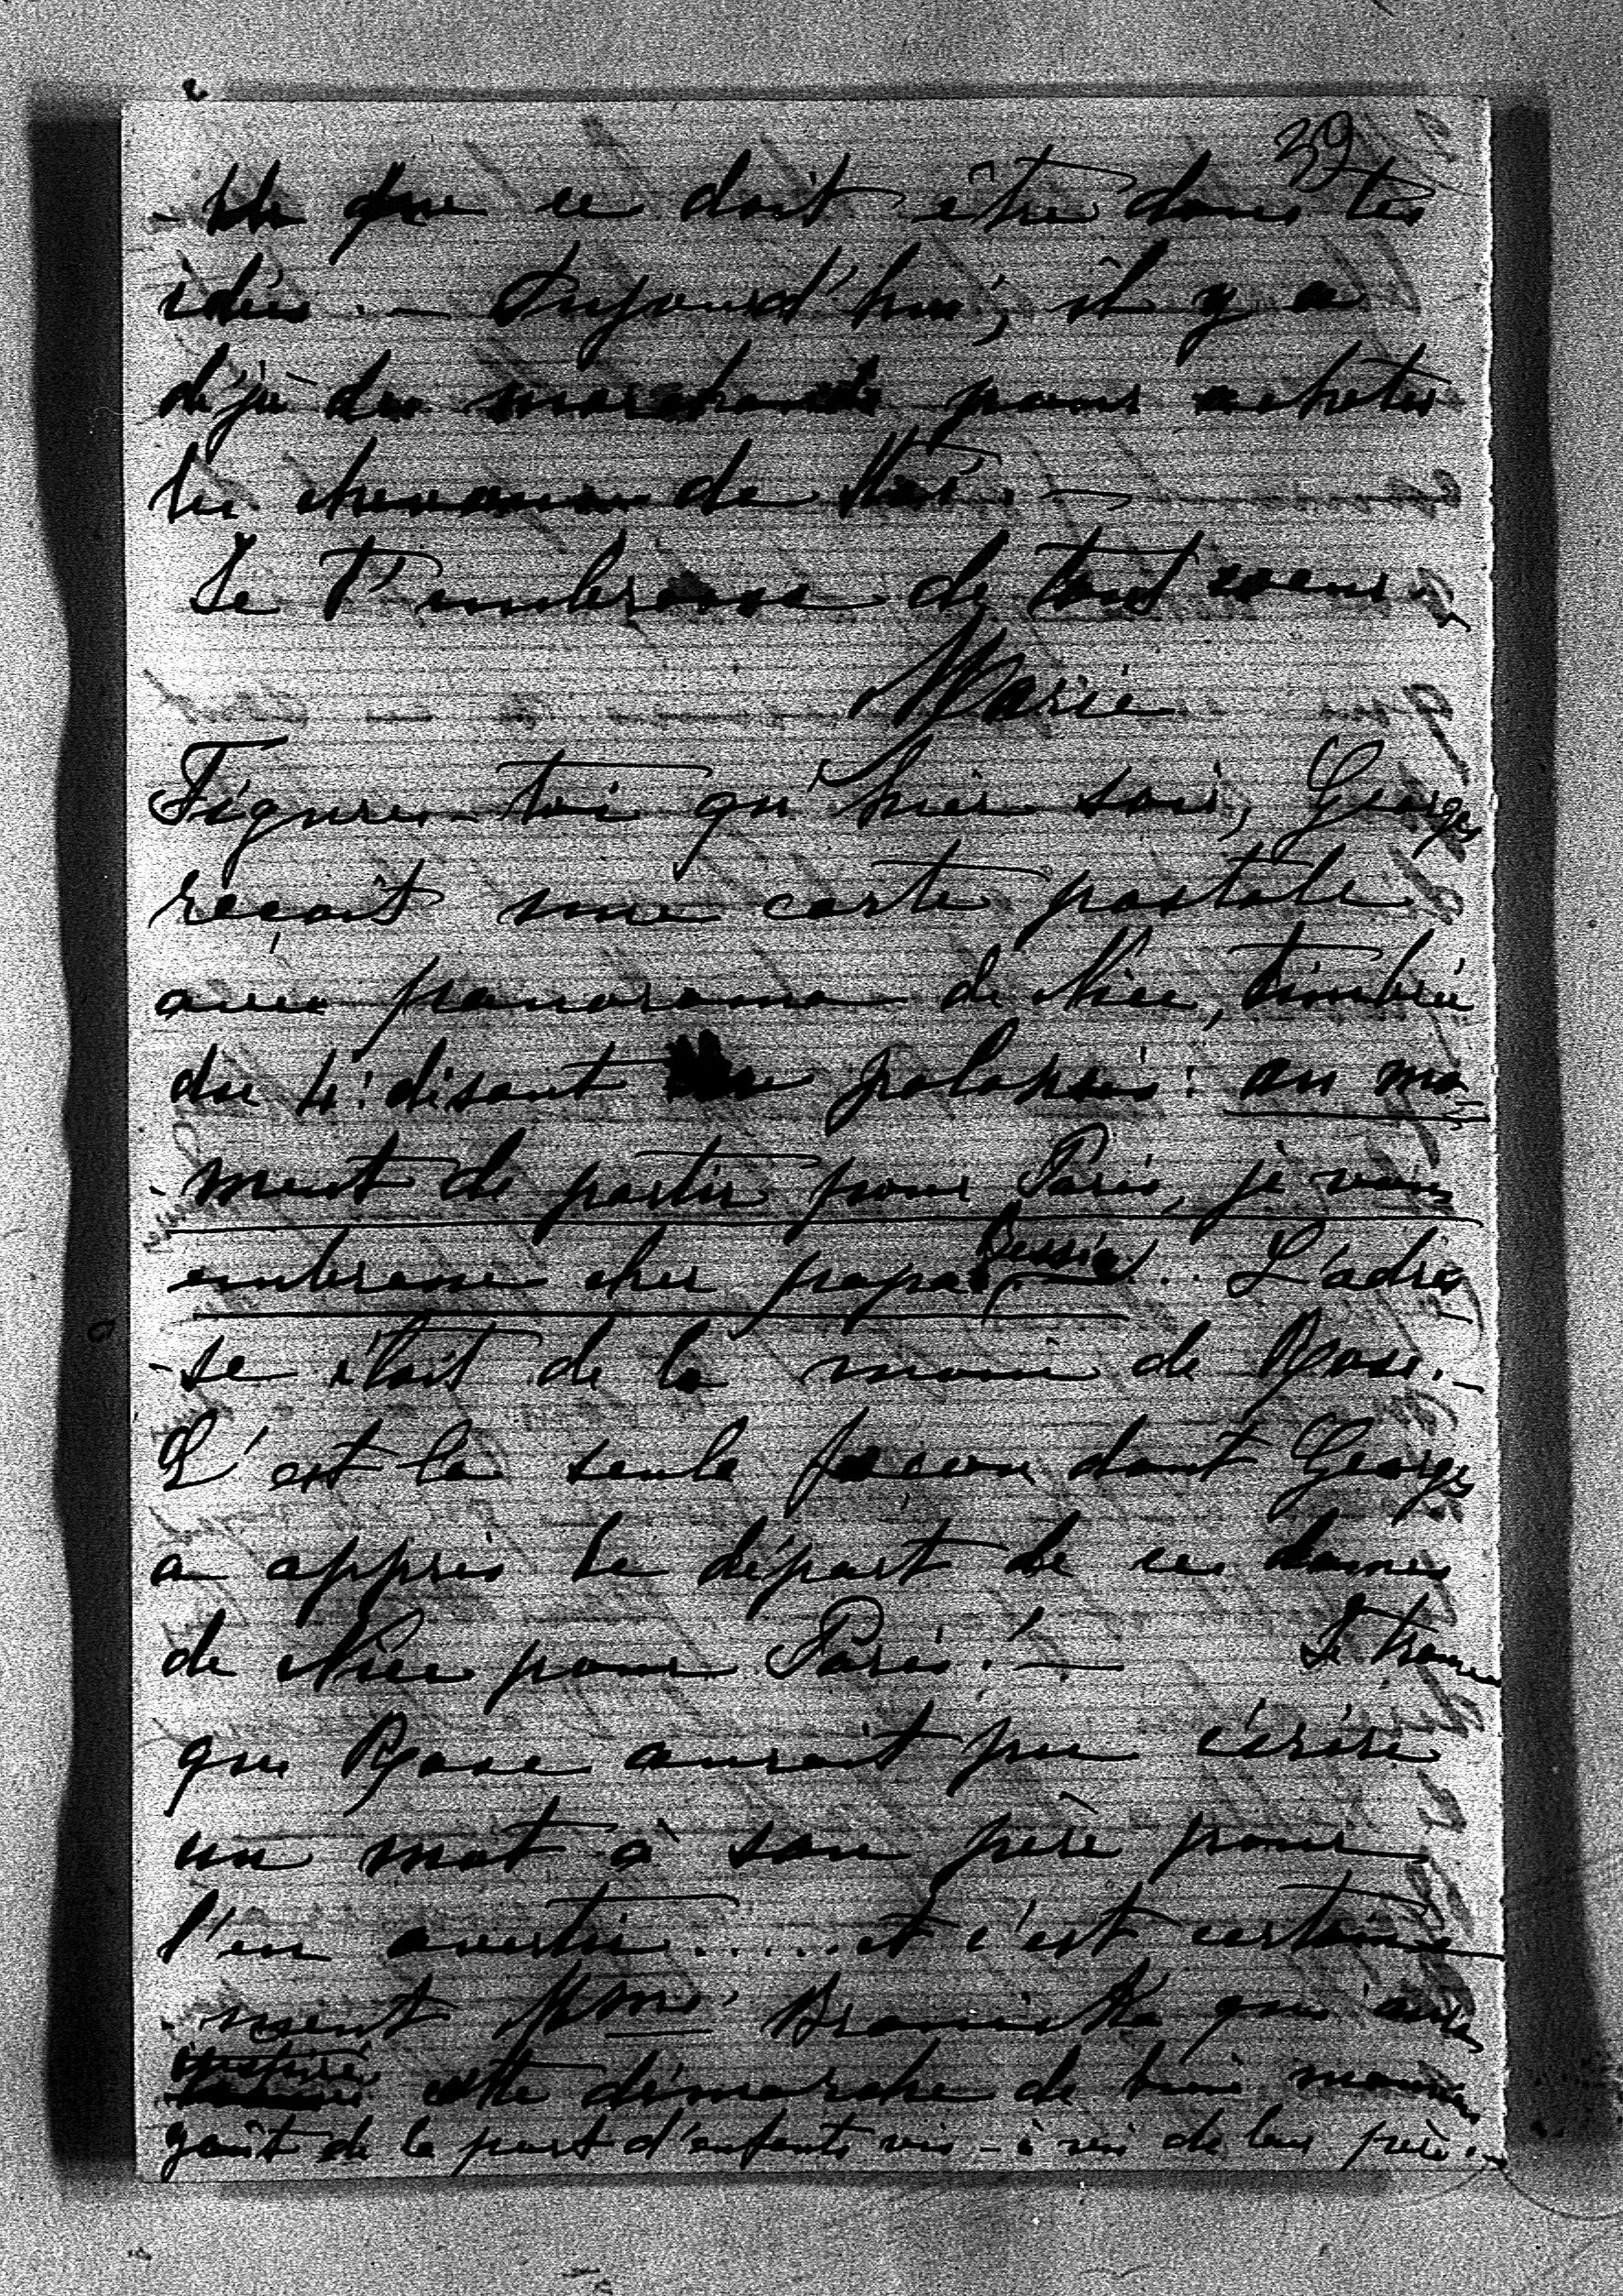 39
que ce doit être dans tes
idées. — Aujourd'hui, il y a
déjà des marchands pour acheter
les chevaux de
Je t'embrasse de tout coeur. —
Marie
Figures-toi qu'hier soir, Georges
reçoit une carte postale
avec panorama de Nice, timbrée
du 4! disant : au mo-
-ment de partir pour Paris, je vous
embrasse cher papa. Bessie... L'adres-
-se était de la main de Rose. —
C'est la seule façon dont Georges
a appris le départ de ces dames
de Nice pour Paris! — Je trouve
que Rose aurait pu écrire
un mot à son père pour
l'en avertir...... et c'est certaine-
-ment Mme. Branicka qui aura
inspiré cette démarche de bien mauvais
goût de la part d'enfants vis-à-vis de leur père. —